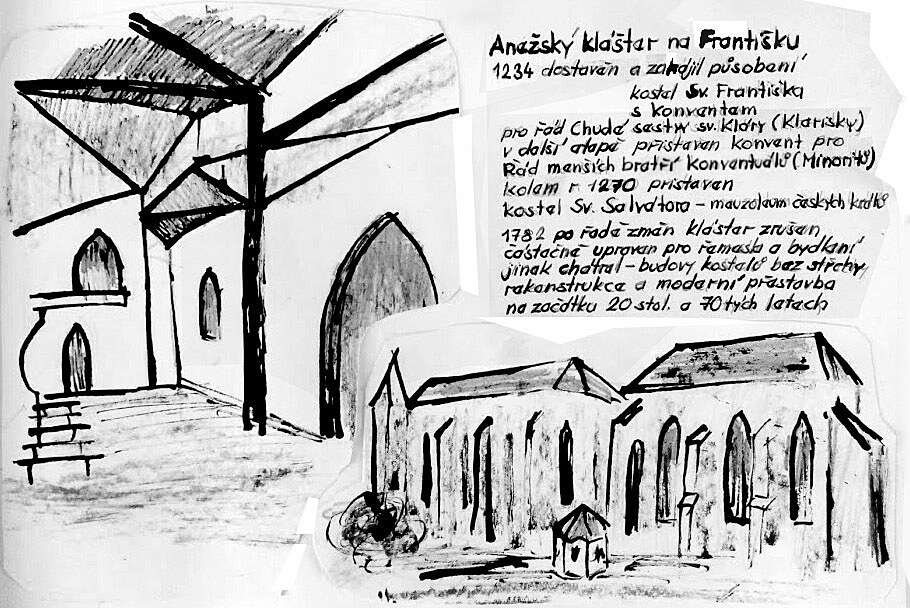 Anežský klášter na Františku
1234 dostavěn a zahájil působení
kostel Sv. Františka
s konventem
pro řád Chudé sestry sv. Kláry (Klarisky)
v další etapě přistavěn konvent pro
Řád menších bratří konventuálů (Minoritů)
kolem r. 1270 přistavěn
kostel Sv. Salvátora – mauzoleum českých králů
1782 po řadě změn klášter zrušen,
částečně upraven pro řemesla a bydlení
jinak chátral – budovy kostelů bez střechy,
rekonstrukce a moderní přestavba
na začátku 20 stol. a 70tých letech